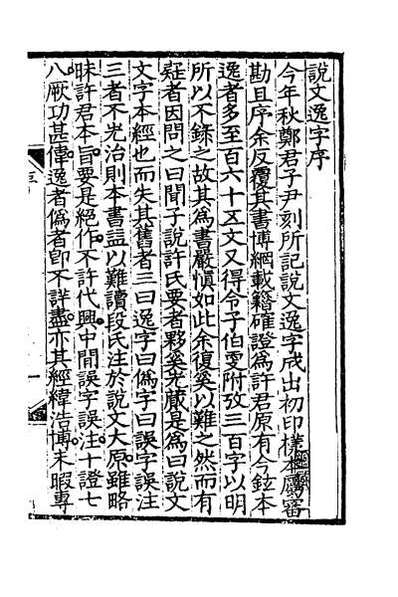 說文逸字序
今年秋鄭君子尹刻所記說文逸字成出初印樣本屬審
勘且序余反覆其書博綱載籍確證為許君原有今鉉本
逸者多至百六十五文又得令子伯更附攷三百字以明
所以不錄之故其為書嚴愼如此余復奚以難之然而有
疑者因問之曰聞子說許氏要者夥奚先蕆是為曰說文
文字本經也而失其舊者三曰逸字曰僞字曰誤字誤注
三者不先治則本書益以難讀段氏注於說文大原雖略
昧許君本旨要是絕作不許代興中閒誤字誤注十證七
八厥功甚偉逸者僞者卽不詳盡亦其經緯浩博未暇專